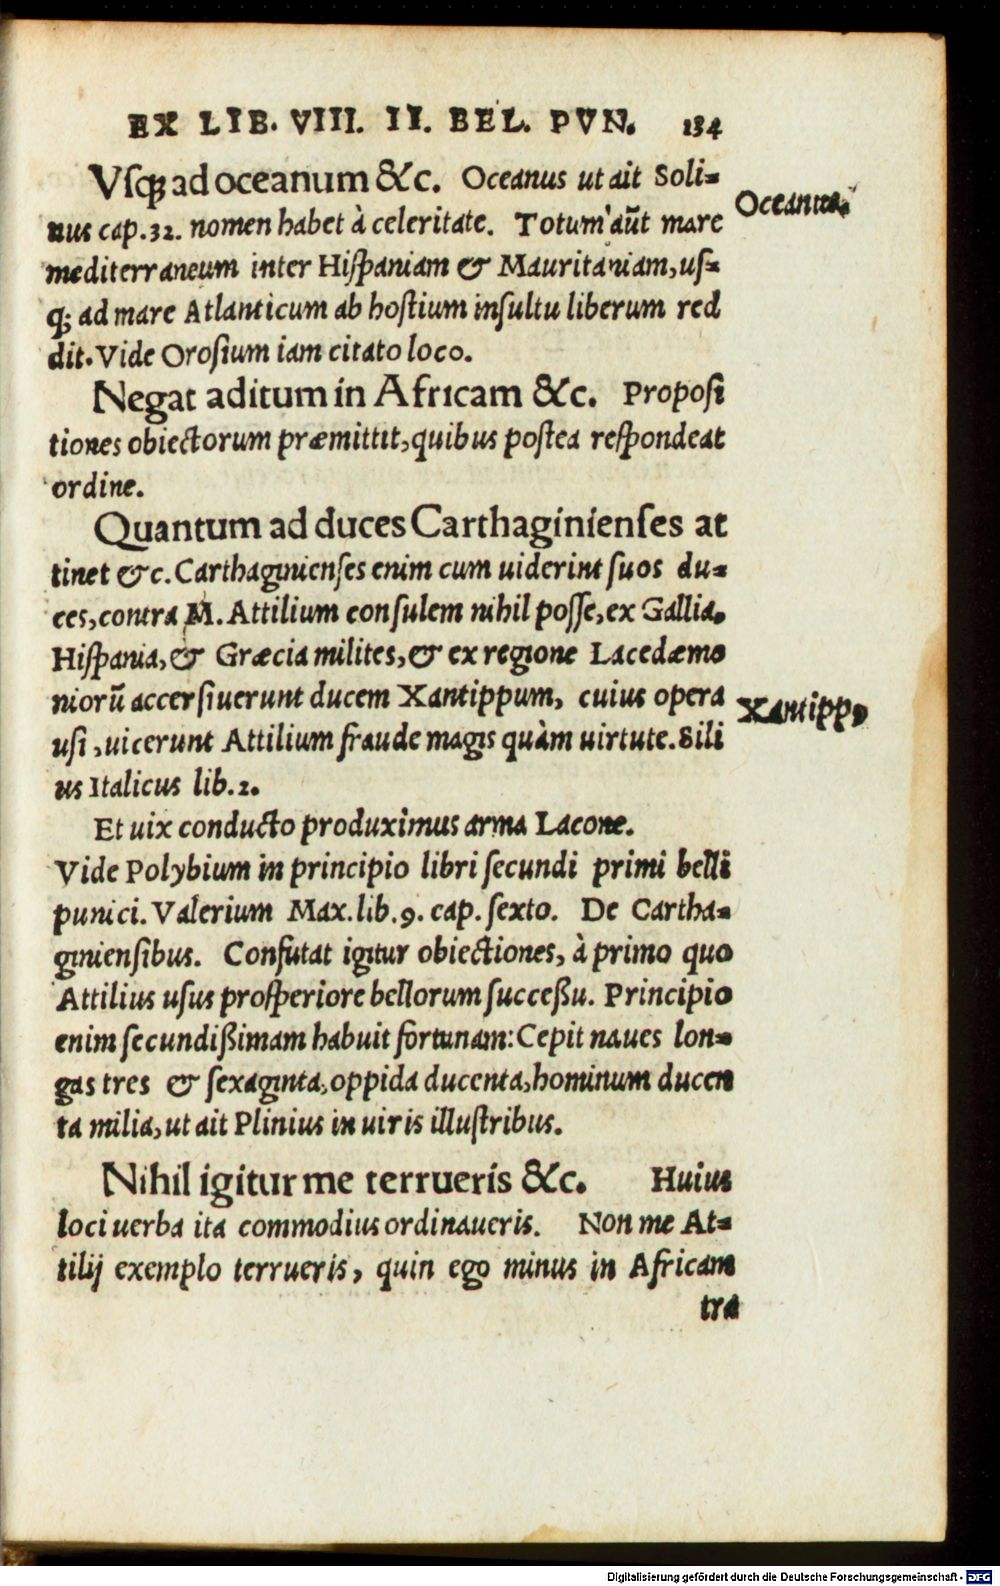 EX LIB. VIII. II. BEL. PVN. 134
Vsq; ad oceanum &c. Oceanus ut ait Soli-
nus cap.32. nomen habet à celeritate. Totum aũt mare
mediterraneum inter Hiſpaniam & Mauritaniam,uſ-
q; ad mare Atlanticum ab hoſtium inſultu liberum red
dit. Vide Oroſium iam citato loco.
Oceanus.
Negat aditum in Africam &c. Propoſi
tiones obiectorum præmittit,quibus poſtea reſpondeat
ordine.
Quantum ad duces Carthaginienſes at
tinet &c. Carthaginienſes enim cum uiderint ſuos du-
ces,contra M. Attilium conſulem nihil poſſe,ex Gallia,
Hiſpania,& Græcia milites,& ex regione Lacedæmo
niorũ accerſiuerunt ducem Xantippum, cuius opera
uſi ,uicerunt Attilium fraude magis quàm uirtute. Sili
us Italicus lib.2.
Xantipp9
Et uix conducto produximus arma Lacone.
Vide Polybium in principio libri ſecundi primi belli
punici. Valerium Max. lib.9. cap. ſexto. De Cartha-
ginienſibus. Confutat igitur obiectiones, à primo quo
Attilius uſus proſperiore bellorum ſucceßu. Principio
enim ſecundißimam habuit fortunam: Cepit naues lon-
gas tres & ſexaginta,oppida ducenta,hominum ducen
ta milia,ut ait Plinius in uiris illuſtribus.
Nihil igitur me terrueris &c. Huius
loci uerba ita commodius ordinaueris. Non me At-
tilij exemplo terrueris, quin ego minus in Africam
tra
Digitalisierung gefördert durch die Deutsche Forschungsgemeinschaft - DFG